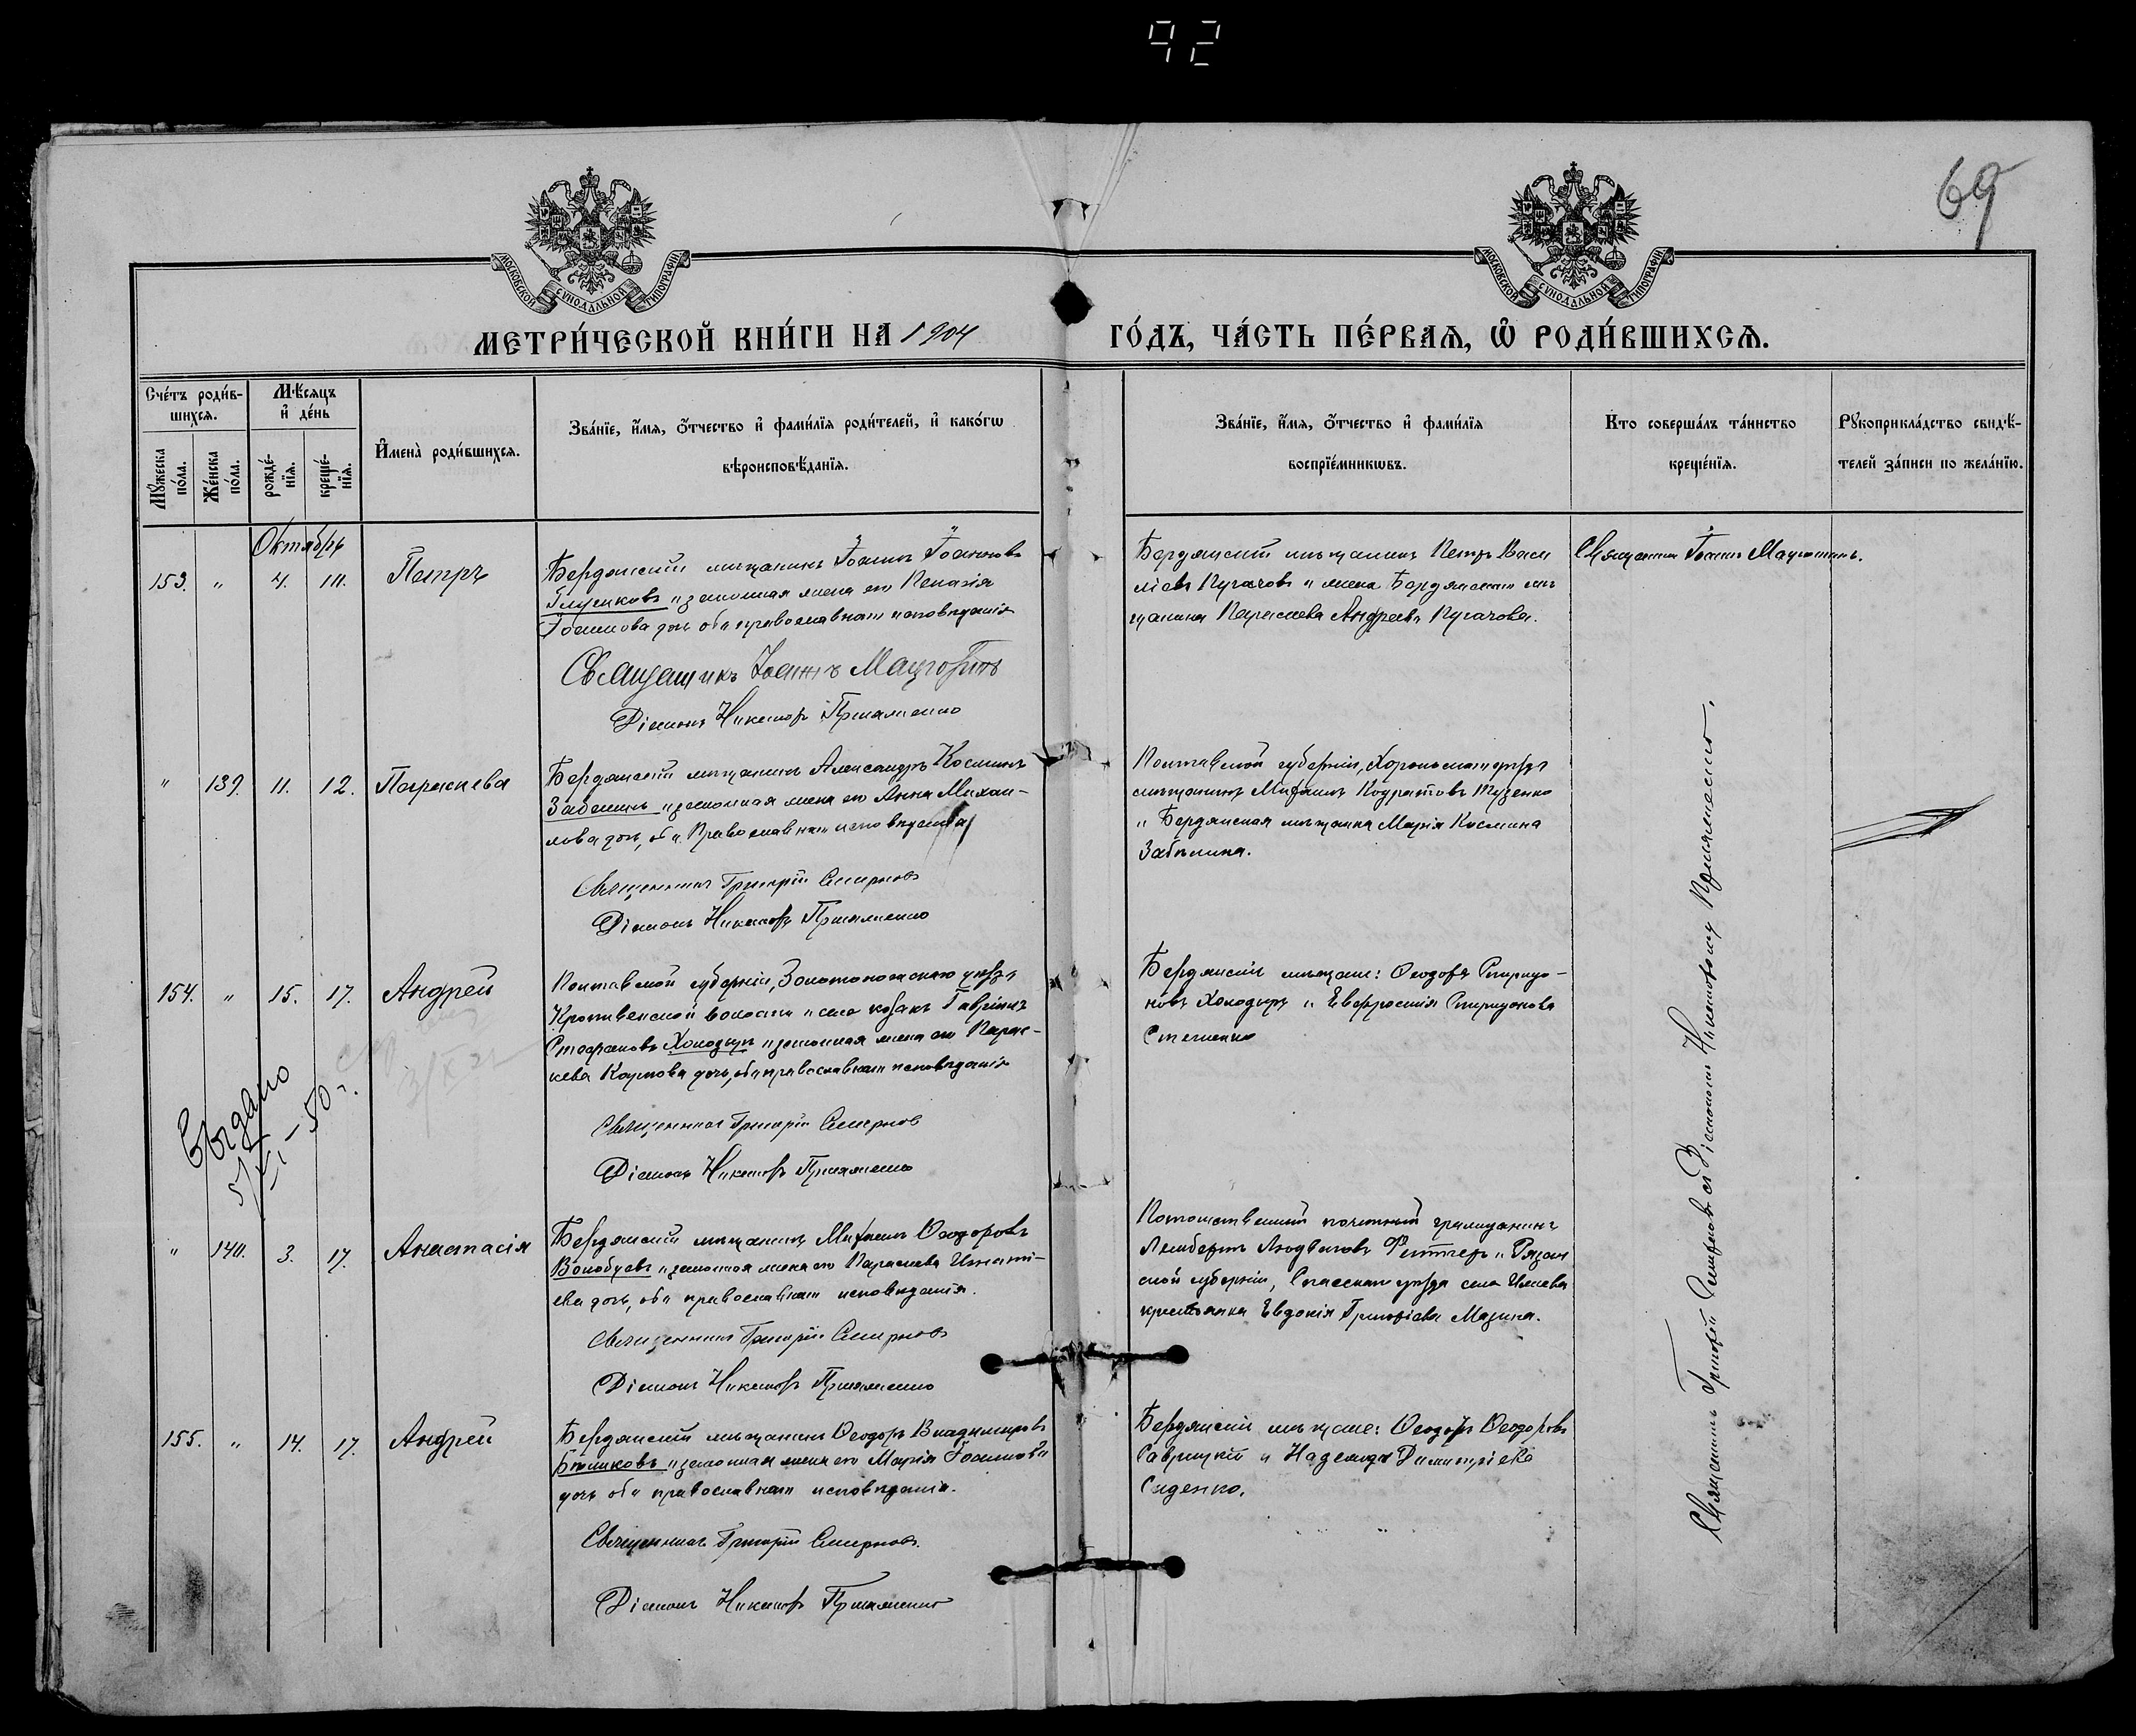 92
69
МОСКОВСКОЙ СѴНОДАЛЬНОЙ ТИПОГРАФІИ
МОСКОВСКОЙ СѴНОДАЛЬНОЙ ТИПОГРАФІИ
МЕТРИ́ЧЕСКОЙ КНИ́ГИ НА 1904 ГО́ДЪ, ЧА́СТЬ ПЕ́РВАѦ, Ѡ҆ РОДИ́ВШИХСѦ.
Сче́тъ роди́в-
шихсѧ.
Мѣ́сяцъ
и҆ де́нь
Мꙋ́жеска по́ла.
Же́нска по́ла.
рожде́-нїѧ.
креще́-нїѧ.
И҆мена̀ роди́вшихсѧ.
Зва́нїе, и҆́мѧ, о҆́тчество и҆ фами́лїѧ роди́телей, и҆ како́гѡ
вѣроисповѣ́данїѧ.
Зва́нїе, и҆́мѧ, о҆́тчество и҆ фами́лїѧ
воспрїе́мникѡвъ.
Кто соверша́лъ та́инство
креще́нїѧ.
Рꙋкоприкла́дство свидѣ́-
телей за́писи по жела́нїю.
Октябрь
153. " 4. 10. Петръ
Бердянскій мѣщанинъ Іоаннъ Іоанновъ
и законная жена его
Іоаннова дочь оба православнаго исповѣданія
Священникъ Іоаннъ
Діаконъ Никаноръ
Бердянскій мѣщанинъ Петръ Васи
ліевъ Пугачовъ и жена Бердянскаго мѣ
щанина Параскева Андреева Пугачова.
Священникъ Іоаннъ
" 139. 11. 12. Параскева
Бердянскій мѣщанинъ Александръ Косминъ
Забѣлинъ и законная жена его Анна Михаи-
лова дочь, оба Православнаго исповѣданія
Священникъ Григорій Смирновъ
Діаконъ Никаноръ
Полтавской губерніи, Хорольскаго уѣзда
мѣщанинъ Михаилъ Кодратовъ
и Бердянская мѣщанка Марія Космина
Забѣлина.
154. " 15. 17. Андрей
Полтавской губерніи, Золотоношскаго уѣзда
Кропивенской волости и села козакъ Гавріилъ
Стефановъ Холодцръ и законная жена его Парас-
кева Карпова дочь, оба православнаго исповѣданія
Священникъ Григорій Смирновъ
Діаконъ Никаноръ
Бердянскіе мѣщане: Ѳеодоръ Спиридо-
новъ и Евфросинія Спиридонова
Выдано
5/XI – 50 г.
" 140. 3. 17. Анастасія
Бердянскій мѣщанинъ Михаилъ Ѳеодоровъ
и законная жена его Параскева Игнаті-
ева дочь, оба православнаго исповѣданія.
Священникъ Григорій Смирновъ
Діаконъ Никаноръ
Потомственный почетный гражданинъ
Ламбертъ Людвиговъ и Рязан
ской губерніи, Спасскаго уѣзда села Ижевска
крестьянка Евдокія Григоріева Мазина.
155. " 14. 17. Андрей
Бердянскій мѣщанинъ Ѳеодоръ Владиміровъ
и законная жена его Марія Іоаннова
дочь оба православнаго исповѣданія.
Священникъ Григорій Смирновъ.
Діаконъ Никаноръ
Бердянскіе мѣщане: Ѳеодоръ Ѳеодоровъ
Саврицкій и Надежда Димитріева
Сиденко.
Священникъ Григорій Смирновъ съ Діакономъ Никаноромъ